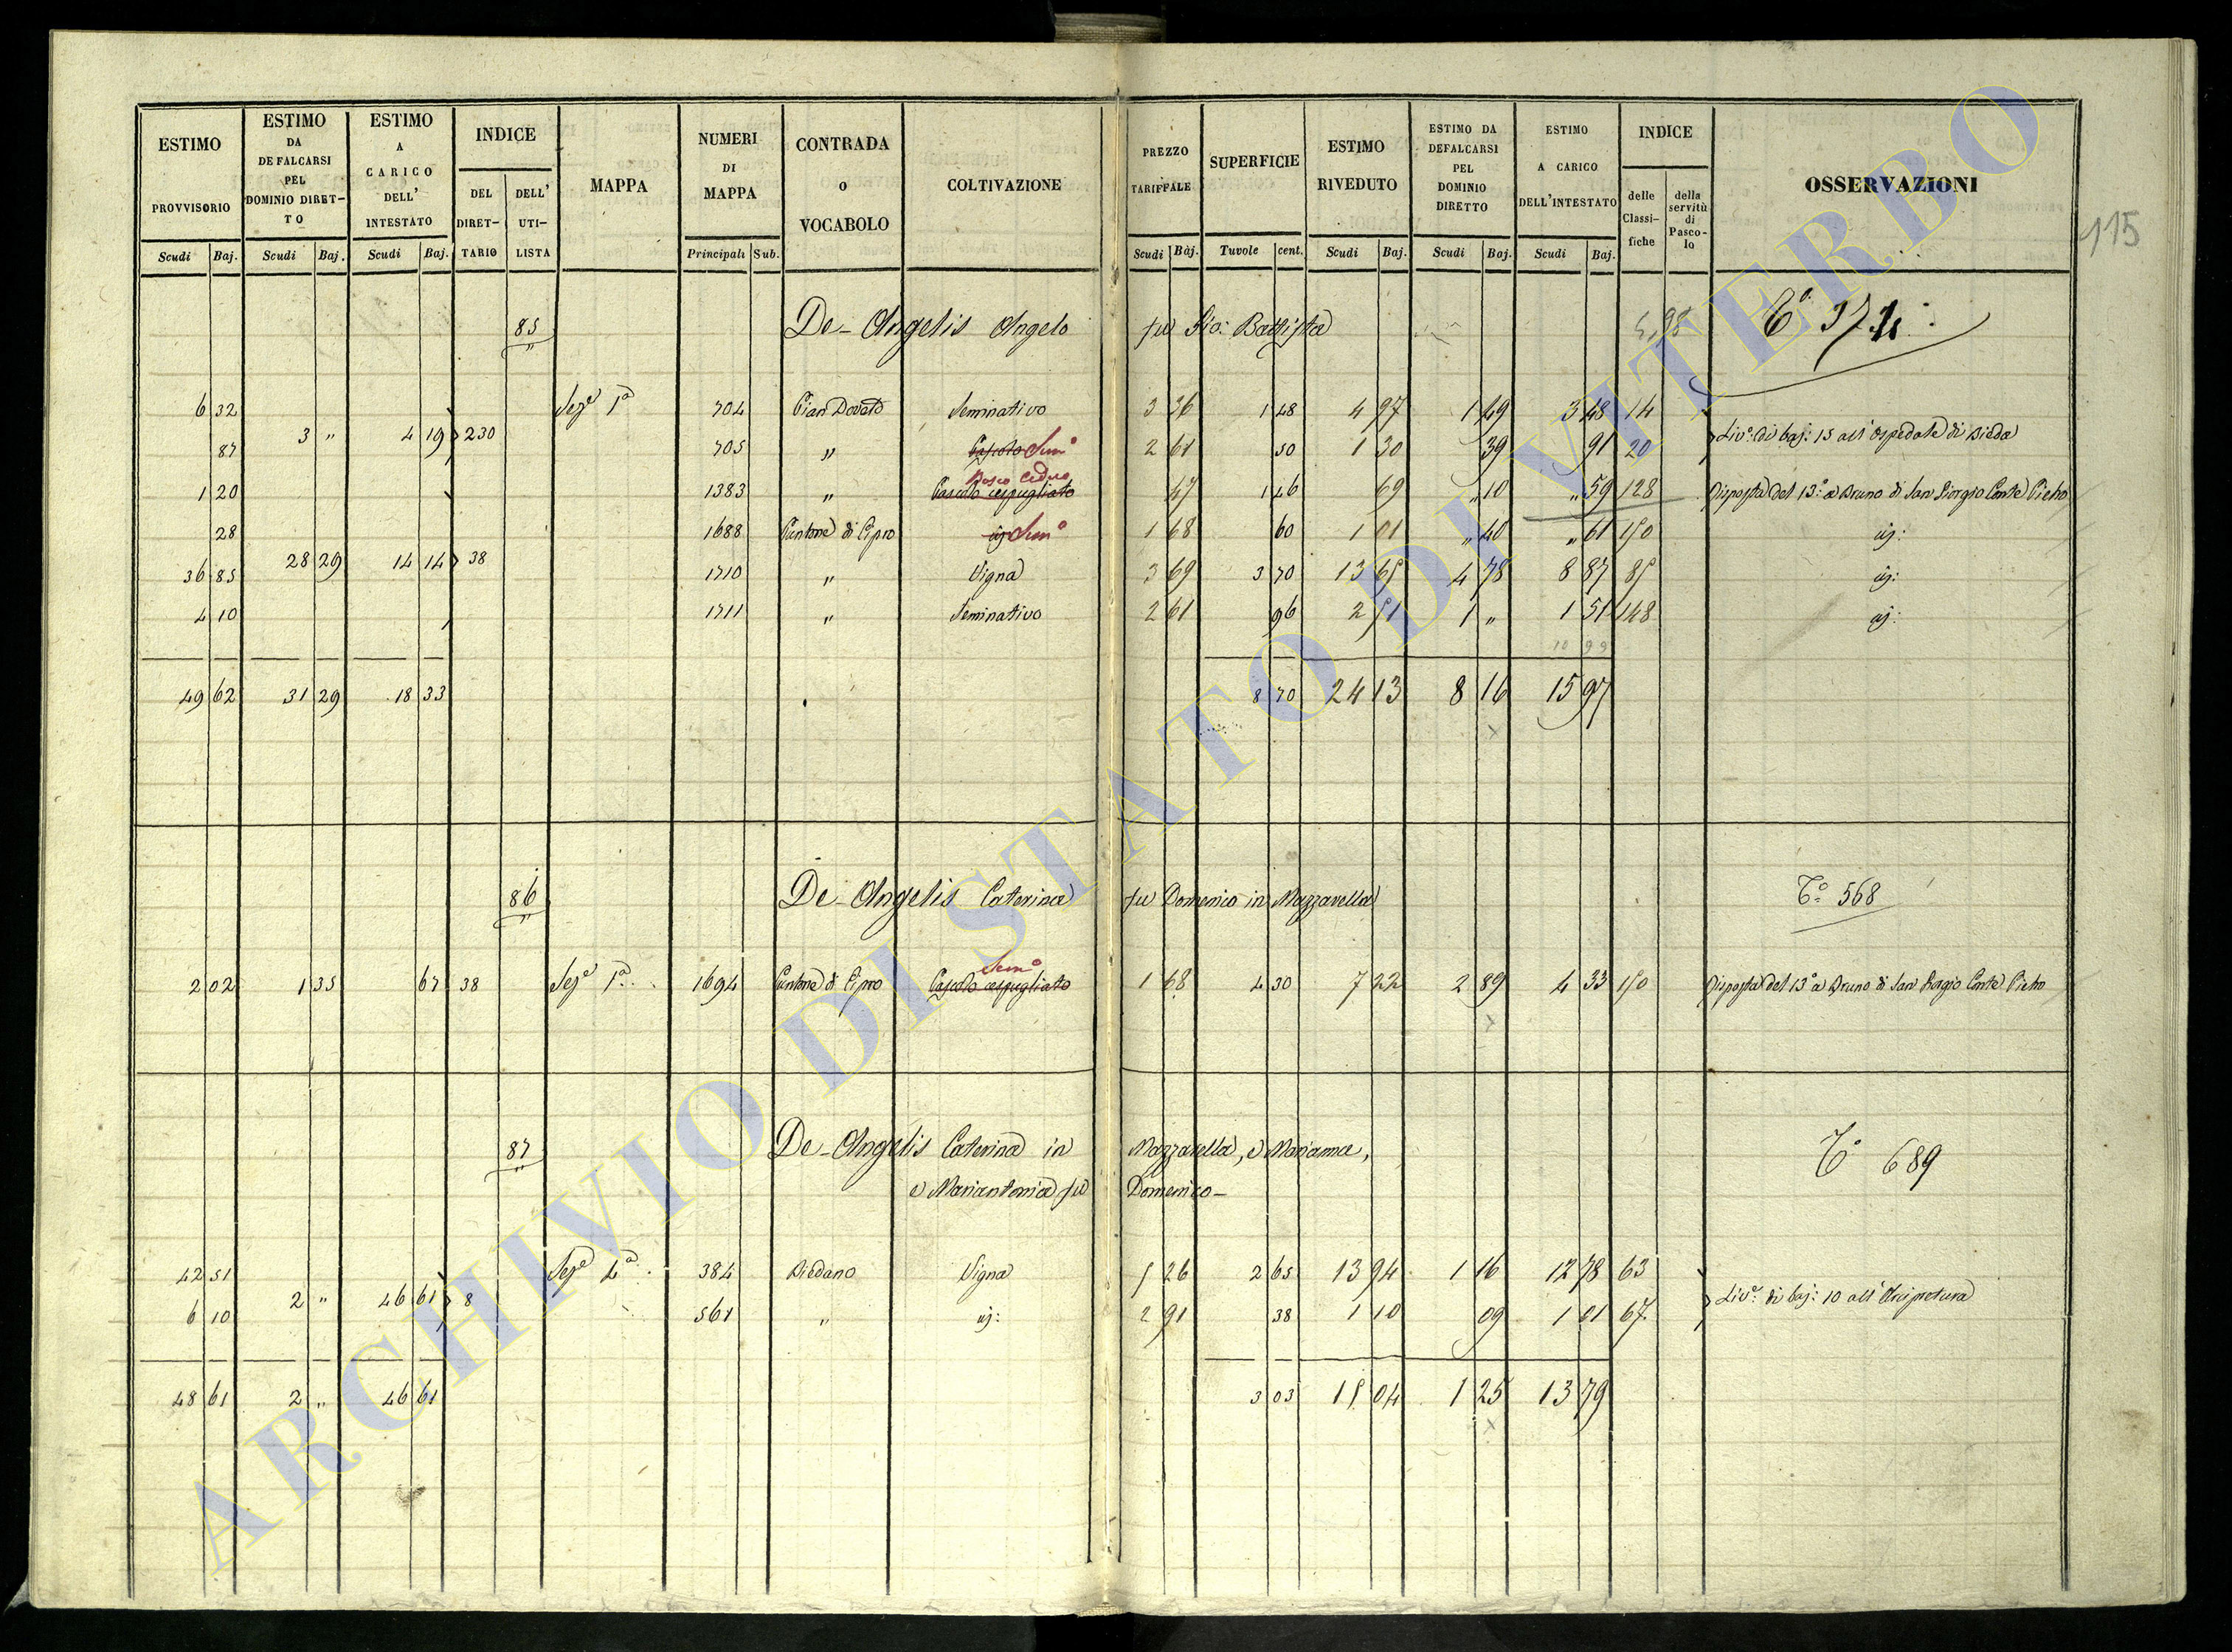 ESTIMO PROVVISORIO Scudi Baj.
ESTIMO DA DEFALCARSI PEL DOMINIO DIRET-TO Scudi Baj.
ESTIMO A CARICO DELL' INTESTATO Scudi Baj.
INDICE DEL DIRET-TARIO DELL' UTI-LISTA
MAPPA
NUMERI DI MAPPA Principali Sub.
CONTRADA O VOCABOLO
COLTIVAZIONE
PREZZO TARIFFALE Scudi Baj.
SUPERFICIE Tuvole cent.
ESTIMO RIVEDUTO Scudi Baj.
ESTIMO DA DEFALCARSI PEL DOMINIO DIRETTO Scudi Baj.
ESTIMO A CARICO DELL'INTESTATO Scudi Baj.
INDICE delle Classi-fiche della servitù di Pasco-lo
OSSERVAZIONI
115
85 De-Angelis Angelo fu Gio: Battista T.o 371
6 32 Sez.e 1a 704 Pian Donato Seminativo 3 36 1 48 4 97 1 49 3 48 14
3 " 4 19 230
87 705 " Pascolo Sem.o 2 61 50 1 30 39 91 20 Liv.o di baj: 15 all'Ospedale di Bieda
1 20 1383 " Pascolo cespugliato Bosco Ceduo 47 1 46 69 " 10 " 59 128 Disposta del 13.o a Bruno di San Giorgio Conte Pietro
28 1688 Cantone di Cipro Sem.o 1 68 60 1 01 " 40 " 61 150 id:
28 29 14 14 38
36 85 1710 " Vigna 3 69 3 70 13 65 4 78 8 87 85 id:
4 10 1711 " Seminativo 2 61 96 2 51 1 " 1 51 148 id:
10 99
49 62 31 29 18 33 8 70 24 13 8 16 15 97
86 De-Angelis Caterina fu Domenico in Mazzarella T.o 568
2 02 1 35 67 38 Sez.e 1a 1694 Cantone di Cipro Pascolo cespugliato Sem.o 1 68 4 30 7 22 2 89 4 33 150 Disposta del 13.o a Bruno di San Giorgio Conte Pietro
87 De-Angelis Caterina in Mazzarella, e Marianna, T.o 689
e Mariantonia fu Domenico-
42 51 Sez.e 4a 384 Biedano Vigna 5 26 2 65 13 94 1 16 12 78 63
2 " 46 61 8 Liv.o di baj: 10 all'Arcipretura
6 10 561 " id: 2 91 38 1 10 09 1 01 67
48 61 2 " 46 61 3 03 15 04 1 25 13 79
ARCHIVIO DI STATO DI VITERBO